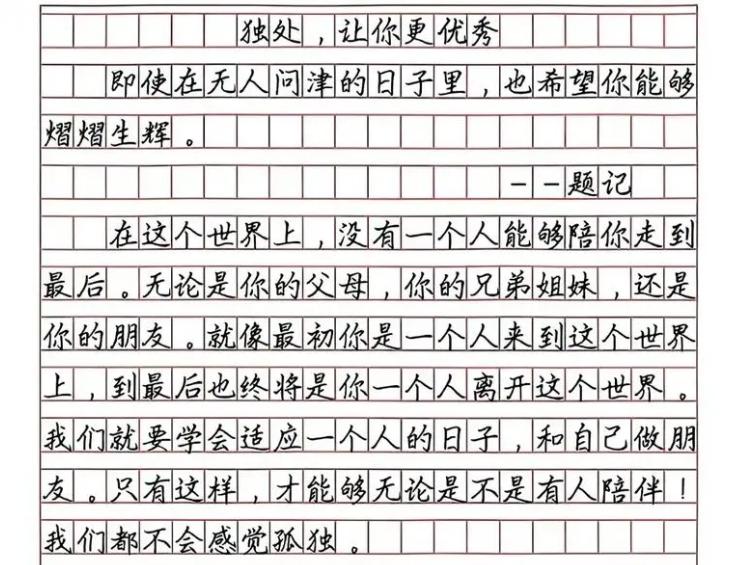 独处，让你更优秀
即使在无人问津的日子里，也希望你能够
熠熠生辉。
--题记
在这个世界上，没有一个人能够陪你走到
最后。无论是你的父母，你的兄弟姐妹，还是
你的朋友。就像最初你是一个人来到这个世界
上，到最后也终将是你一个人离开这个世界。
我们就要学会适应一个人的日子，和自己做朋
友。只有这样，才能够无论是不是有人陪伴！
我们都不会感觉孤独。